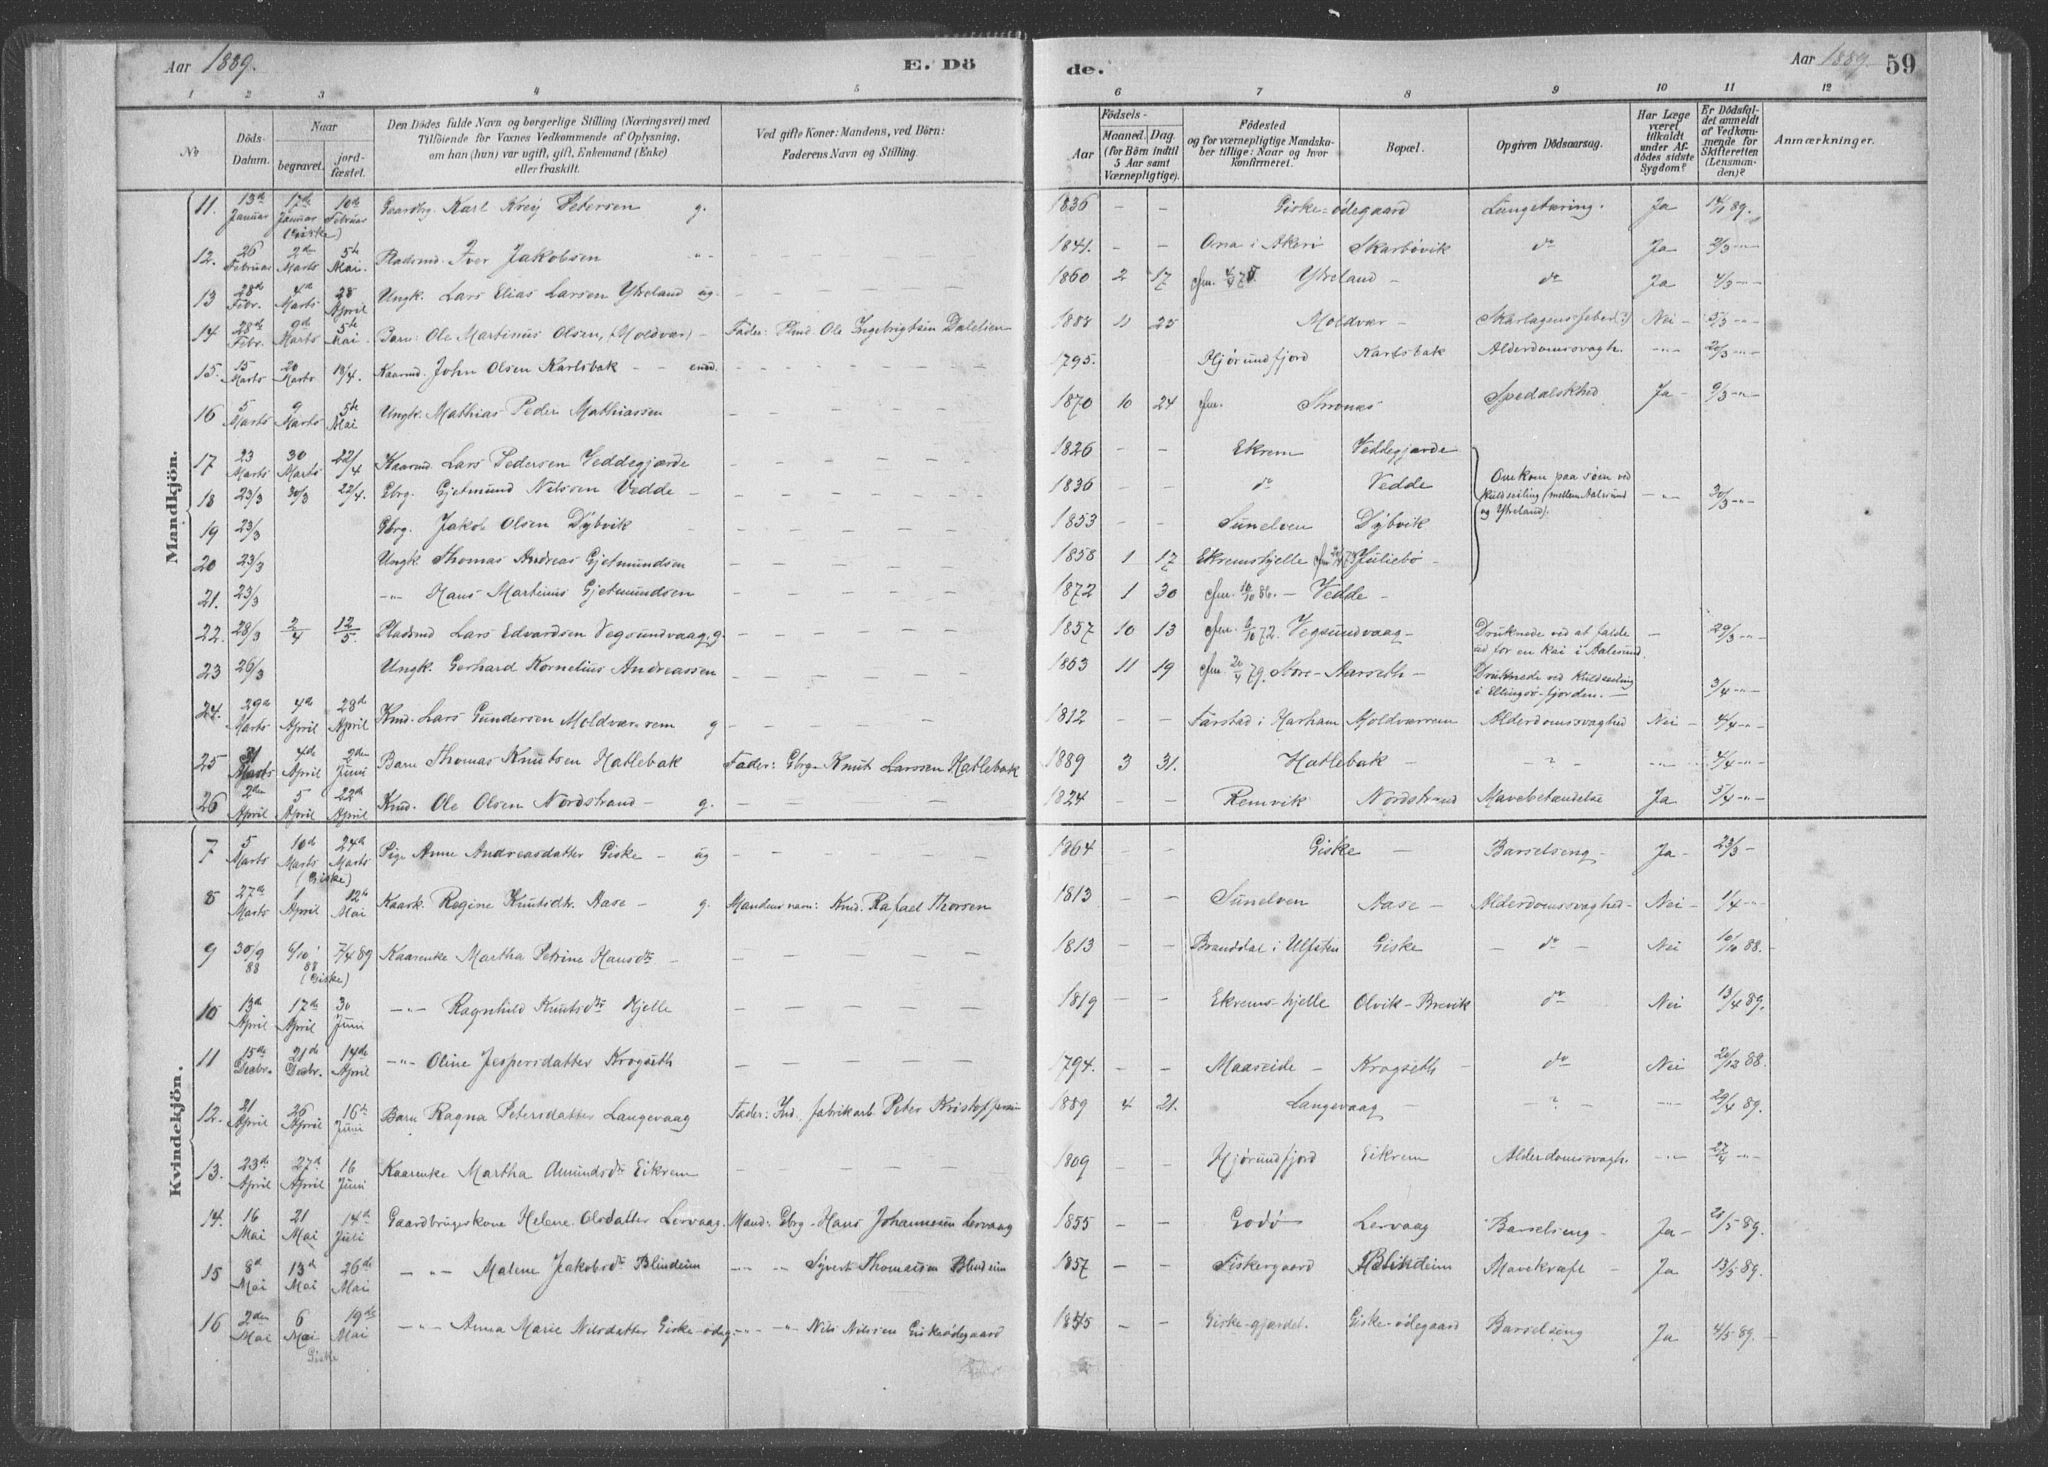 Aar 1889.
E. Dö
de.
Aar 1889.
59
1 2 3 4 5 6 7 8 9 10 11 12
No
Döds-Datum.
Naar
begravet.
jord-fæstet.
Den Dödes fulde Navn og borgerlige Stilling (Næringsvei) med
Tilföiende for Voxnes Vedkommende af Oplysning,
om han (hun) var ugift, gift, Enkemand (Enke)
eller fraskilt.
Ved gifte Koner: Mandens, ved Börn:
Faderens Navn og Stilling.
Födsels-
Aar
Maaned. Dag.
(for Börn indtil
5 Aar samt
Værnepligtige).
Födested
og for værnepligtige Mandska-
ber tillige: Naar og hvor
konfirmeret.
Bopæl.
Opgiven Dödsaarsag.
Har Læge
været
tilkaldt
under Af-
dödes sidste
Sygdom?
Er Dödsfal-
det anmeldt
af Vedkom-
mende for
Skifteretten
(Lensman-
den)?
Anmærkninger.
Mandkjön.
11. 13de Januar 17de Januar (Giske) 10de Februar Gaardbg. Karl Kreij Petersen g. 1836 – – Giske-ødegaard Lungetæring. Ja 14/1 89.
12. 26 Februar 2den Marts 5te Mai. Pladsmd. Iver Jakobsen " 1841. – – Skarbøvik do Ja 2/3 –"–
13 28de Febr. 4de Marts 28 April Ungk. Lars Elias Larsen Ytreland ug. 1860 2 17 Ytreland – do Ja 4/3 –"–
14 28de Febr. 9de Marts 5te Mai. Barn: Ole Martinus Olsen, (Moldvær) – Fader: Ole Ingebrigtsen 1888 11 25 Moldvær – Nei – 5/3 –"–
15. 15 Marts 20 Marts 18/4. Kaarmd. John Olsen Karlsbak – – enkd. 1795. Hjørundfjord Karlsbak Alderdomsvagh. –"– 20/3 –"–
16 5 Marts 9 Marts 5te Mai Ungk. Mathias Peder Mathiassen 1870 10 24 cfm. Spedalskhed Ja – 9/3 –"–
17 23 Marts 30 Marts 22/4 Kaarmd. Lars Pedersen Veddegjærde 1826 – – Ekrem Veddegjærde
18 23/3 30/3 22/4. Gbrg. Gjetmund Nilssen Vedde – 1836 – – do Vedde Omkom paa søen ved Kuldseiling (mellem Aalesund og Ytreland). –"– 30/3 –"–
19 23/3 Gbrg. Jakob Olsen Dybvik 1853 – – Sunelven Dybvik
20 23/3 Ungk. Thomas Andreas Gjetmundsen 1858 1 17 Ekremshjelle Juliebø –
21. 23/3 –"– Hans Martinus Gjetmundsen 1872 1 30 cfm. 10/10 86. – Vedde –
22. 28/3 2/4 12/5 Pladsmd Lars Edvardsen Vegsundvaag, g. 1857 10 13 Vegsundvaag – Druknede ved at falde ud for en Kai i Aalesund. – 29/3 –"–
23 26/3 Ungk. Gerhard Kornelius Andreassen 1863 11 19 cfm. 20/4 79. Nore-Aarseth – Druknede ved Kuldseiling i Ellingsø-fjorden. – 3/4 –"–
24. 29de Marts 4de April 28de April Kmd. Lars Gundersen Moldværrem g 1812 – – Farstad i Harham Moldværrem Alderdomssvaghed Nei – 4/4 –"–
25 31 Marts 4de April 2den Juni Barn Thomas Knutsen Hatlebak Fader: Gbrg. Knut Larssen Hatlebak 1889 3 31. Hatlebak – –"– –"– 4/4 –"–
26 2den April 5 April 22de April Kmd. Ole Olsen Nordstrand – g. 1824 – – Remvik Nordstrand Mavebetændelse Ja 5/4 –"–
Kvindekjön.
7 5 Marts 10de Marts (Giske) 24de Marts Pige Anne Andreasdatter Giske – ug 1864 – – Giske – Barselseng – Ja – 23/3 –
8 27de Marts 1 April 12te Mai Kaark. Regine Knutsdtr. Aase – g. Mandens navn: Kmd. Rafael Thorsen 1813 – – Sunelven Aase – Alderdomssvaghed – Nei – 1/4 –"–
9 30/9 88 6/10 88 (Giske) 7/4 89 Kaarenke Martha Petrine Hansdtr – 1813 – – Branddal i Ulfsten Giske – do – Nei 10/10 88. –
10 13de April 17de April 30 Juni –"– Ragnhild Knutsdtr Hjelle 1819 – – Ekrems-hjelle Olvik-Brevik do Nei 13/4 89.
11 15de Decbr. 21de Decbr. 14de April –"– Oline Jespersdatter Krogseth 1794. – – Maaseide – Krogseth do Nei 20/12 88
12. 21 April 26 April 16de Juni Barn Ragna Petersdatter Langevaag Fader: Ind. fabrikarb. Peter Kristoffersen 1889 4 21. Langevaag – –"– –"– 29/4 89.
13. 23de April 27de April 16 Juni Kaarenke Martha Amundsdtr Eikrem 1809 – – Hjørundfjord Eikrem Alderdomsvagh. –"– 27/4 –"–
14. 16 Mai 21 Mai 14de Juli Gaardbrugerskone Helene Olsdatter Lervaag. Mand: Gbrg. Hans Johannesen Lervaag 1855 – – Godø Lervaag Barselseng – Ja – 20/5 89.
15 8de Mai 13de Mai 26de Mai –"– Malene Jakobsdtr Blindeim –"– Syvert Thomassen Blindeim 1857 – – Fiskergaard Blindeim Mavekræft – Ja 13/5 89.
16 2den Mai 6 Mai Giske 19de Mai –"– Anna Marie Nilsdatter Giske-ødeg. –"– Nils Nilssen Giskeødegaard 1845 – – Giske-gjærdet. Giske-ødegaard Barselseng Ja 4/5 89. –